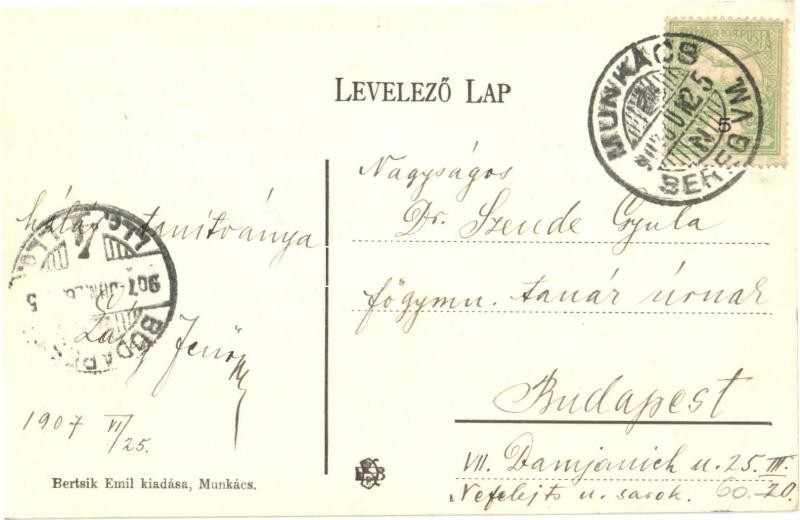 LEVELEZŐ LAP
MUNKÁCS
BEREG VM.
5
Nagyságos
Dr. Szende Gyula
főgymn. tanár úrnak
Budapest
VII. Damjanich u. 25. III.
Nefelejts u. sarok. 60-20.
hálás tanítványa
Jenő
1907 VI/25.
BUDAPEST
907
5
Bertsik Emil kiadása, Munkács.